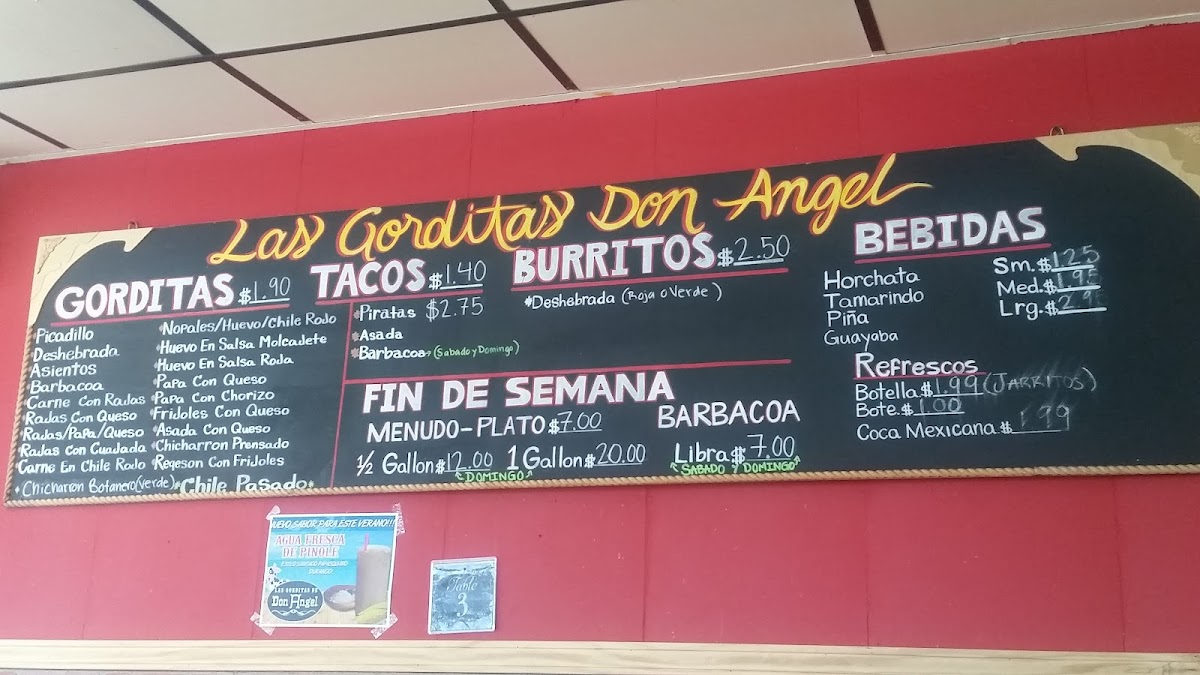 Las Gorditas Don Angel
GORDITAS $1.90
*Picadillo
*Deshebrada
*Asientos
*Barbacoa
*Carne Con Rajas
*Rajas Con Queso
*Rajas/Papa/Queso
*Rajas Con Cuajada
*Carne En Chile Rojo
*Chicharron Botanero(Verde)
*Nopales/Huevo/Chile Rojo
*Huevo En Salsa Molcajete
*Huevo En Salsa Roja
*Papa Con Queso
*Papa Con Chorizo
*Frijoles Con Queso
*Asada Con Queso
*Chicharron Prensado
*Reqeson Con Frijoles
*Chile Pasado*
TACOS $1.40
*Piratas $2.75
*Asada
*Barbacoa→(Sabado y Domingo)
BURRITOS $2.50
*Deshebrada (Roja o Verde)
FIN DE SEMANA
MENUDO-PLATO $7.00
½ Gallon $12.00 1 Gallon $20.00
DOMINGO
BARBACOA
Libra $7.00
SABADO y DOMINGO
BEBIDAS
Horchata
Tamarindo
Piña
Guayaba
Sm. $1.25
Med. $1.95
Lrg. $2.9
Refrescos
Botella $1.99 (JARRITOS)
Bote. $1.00
Coca Mexicana $1.99
NUEVO SABOR PARA ESTE VERANO!!!
AGUA FRESCA
DE PINOLE
DURANGO
LAS GORDITAS DE
Don Angel
Table
3